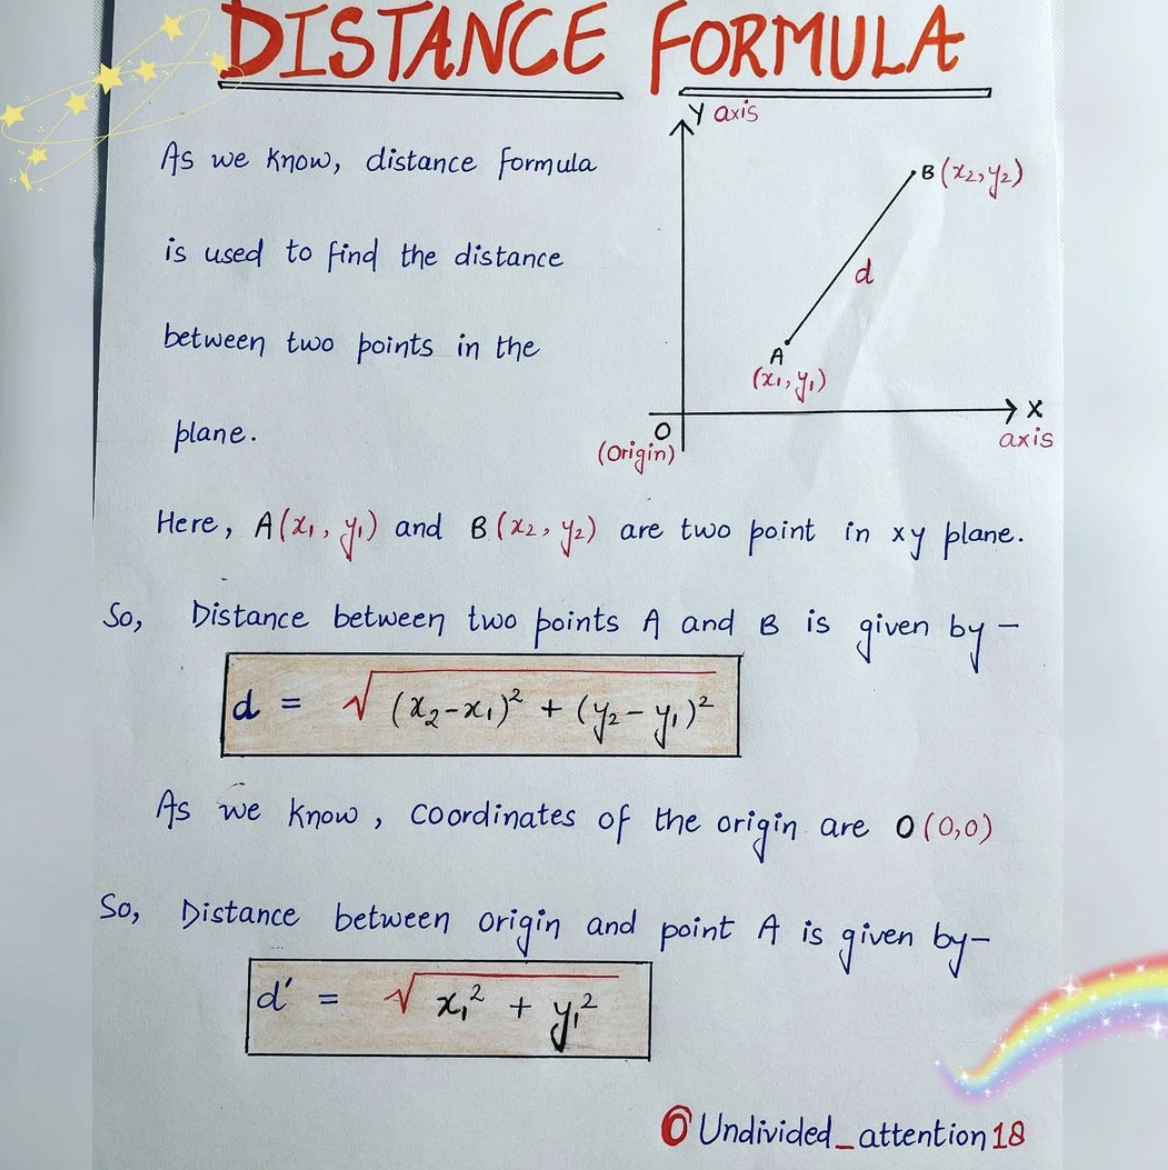 DISTANCE FORMULA
As we know, distance formula
is used to find the distance
between two points in the
plane.
Y axis
B (x₂, y₂)
d
A
(x₁, y₁)
X
axis
O
(Origin)
Here, A(x₁, y₁) and B(x₂, y₂) are two point in xy plane.
So, Distance between two points A and B is given by-
d = √(x₂-x₁)² + (y₂-y₁)²
As we know, coordinates of the origin are O(0,0)
So, Distance between origin and point A is given by-
d' = √x₁² + y₁²
Undivided_attention18